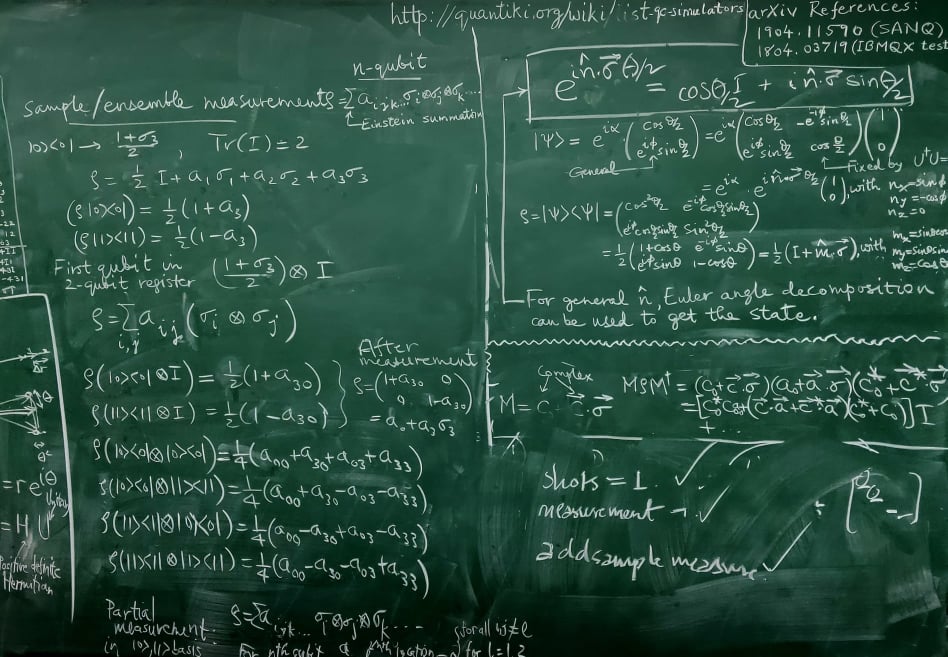 http://quantiki.org/wiki/list-qc-simulators
arXiv References:
1904.11590 (SANQ)
1804.03719 (IBMQX test
n-qubit
Sample/ensemble measurements
ρ=∑a_{ijk...}σ_i⊗σ_j⊗σ_k...
Einstein summation
|0><0| → (1+σ_3)/2 , Tr(I)=2
ρ = 1/2 I + a_1σ_1 + a_2σ_2 + a_3σ_3
(ρ|0><0|) = 1/2(1+a_3)
(ρ|1><1|) = 1/2(1-a_3)
First qubit in
2-qubit register ((1+σ_3)/2) ⊗ I
ρ = ∑_{i,j} a_{ij} (σ_i ⊗ σ_j)
ρ(|0><0|⊗I) = 1/2(1+a_{30})
ρ(|1><1|⊗I) = 1/2(1-a_{30})
After
measurement
ρ=(1+a_{30} 0
0 1-a_{30})
= a_0+a_3σ_3
ρ(|0><0|⊗|0><0|) = 1/4(a_{00}+a_{30}+a_{03}+a_{33})
ρ(|0><0|⊗|1><1|) = 1/4(a_{00}+a_{30}-a_{03}-a_{33})
ρ(|1><1|⊗|0><0|) = 1/4(a_{00}-a_{30}+a_{03}-a_{33})
ρ(|1><1|⊗|1><1|) = 1/4(a_{00}-a_{30}-a_{03}+a_{33})
Partial
measurement:
in |0>,|1> basis
ρ=∑a_{ijk...} σ_i⊗σ_j⊗σ_k...
For nth qubit
for all
for l=1,2
= re^{iθ}
Unitary
= H U
Positive definite
Hermitian
e^{i n̂·σ⃗ θ/2} = cosθ/2 I + i n̂·σ⃗ sinθ/2
|ψ> = e^{iα} (cosθ/2
e^{iφ}sinθ/2) = e^{iα} (cosθ/2 -e^{-iφ}sinθ/2
e^{iφ}sinθ/2 cosθ/2) (1
0)
General
Fixed by U†U=
= e^{iα} · e^{i n̂·σ⃗ θ/2} (1
0), with n_x=sinφ
n_y=-cosφ
n_z=0
ρ=|ψ><ψ| = (cos²θ/2 e^{-iφ}cosθ/2 sinθ/2
e^{iφ}cosθ/2 sinθ/2 sin²θ/2)
= 1/2 (1+cosθ e^{-iφ}sinθ
e^{iφ}sinθ 1-cosθ) = 1/2(I+m̂·σ⃗), with
m_x=sinθcos
m_y=sinθsin
m_z=cosθ
For general n̂, Euler angle decomposition
can be used to get the state.
Complex
M = c_0 + c⃗·σ⃗
MρM† = (c_0+c⃗·σ⃗)(a_0+a⃗·σ⃗)(c_0*+c⃗*·σ⃗)
+ ...
shots = 1
measurement
add sample measure